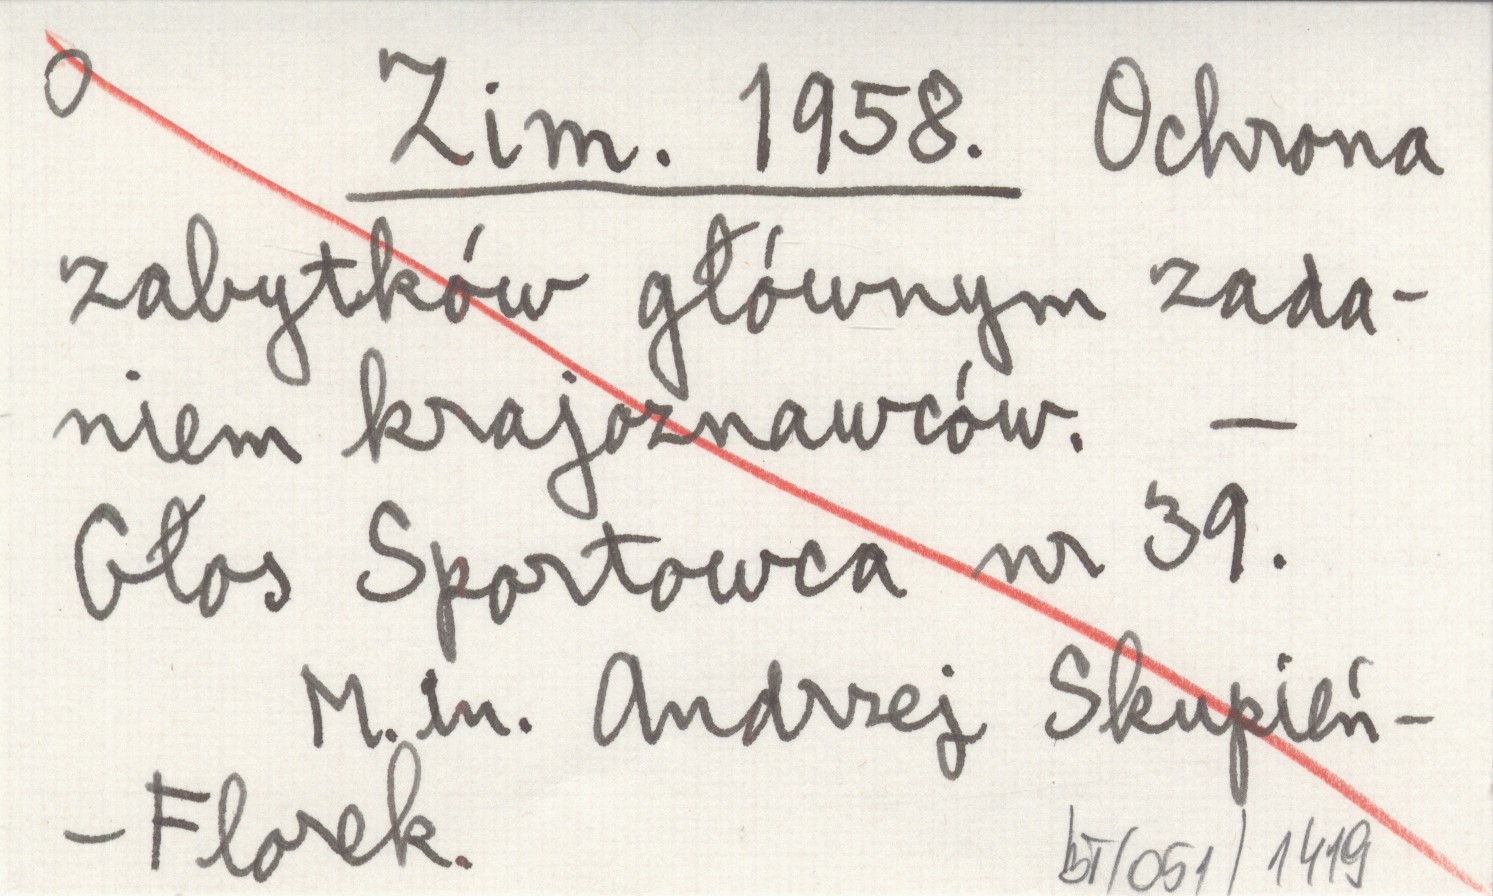 O Zim. 1958. Ochrona
zabytków głównym zada-
niem krajoznawców. —
Głos Sportowca nr 39.
M.in. Andrzej Skupień-
-Florek.
bT/051/1419